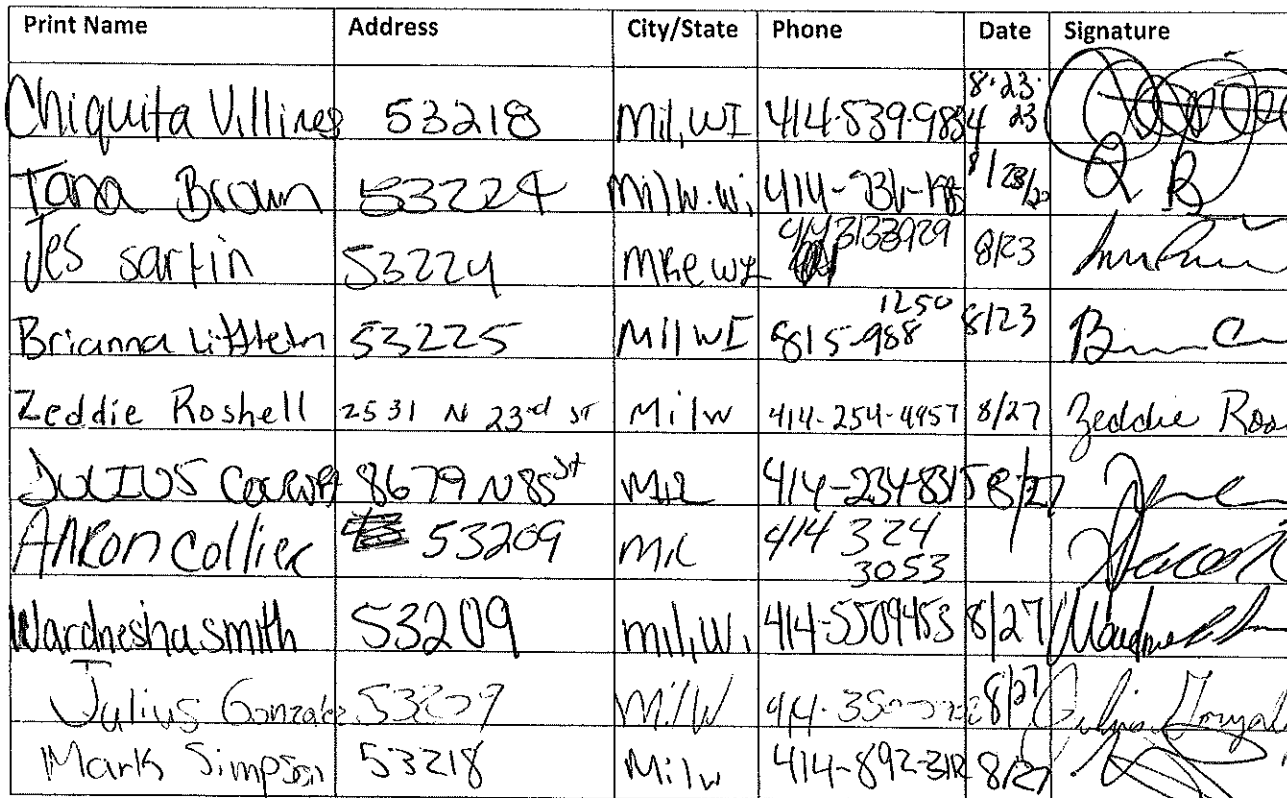 Print Name Address City/State Phone Date Signature
Chiquita Villines 53218 Mil, WI 414-539-9834 8.23.23
Tana Brown 53224 Milw. Wi 414- 8/23/23
Jes sartin 53224 MKe WI 414 3133929 8/23
Brianna 53225 Mil WI 815-988 1250 8/23
Zeddie Roshell 2531 N 23rd ST Milw 414-254-4957 8/27 Zeddie
JULIUS 8679 N 85 St Mil 414-2348315 8/27
Ankon Collier 53209 Mil 414 324 3053
Wardneshasmith 53209 mil, Wi 414-5509453 8/27
Julius Gonzalez 53209 Milw 414-350 8/27 Julius
Mark Simpson 53218 Milw 414-892-3112 8/27